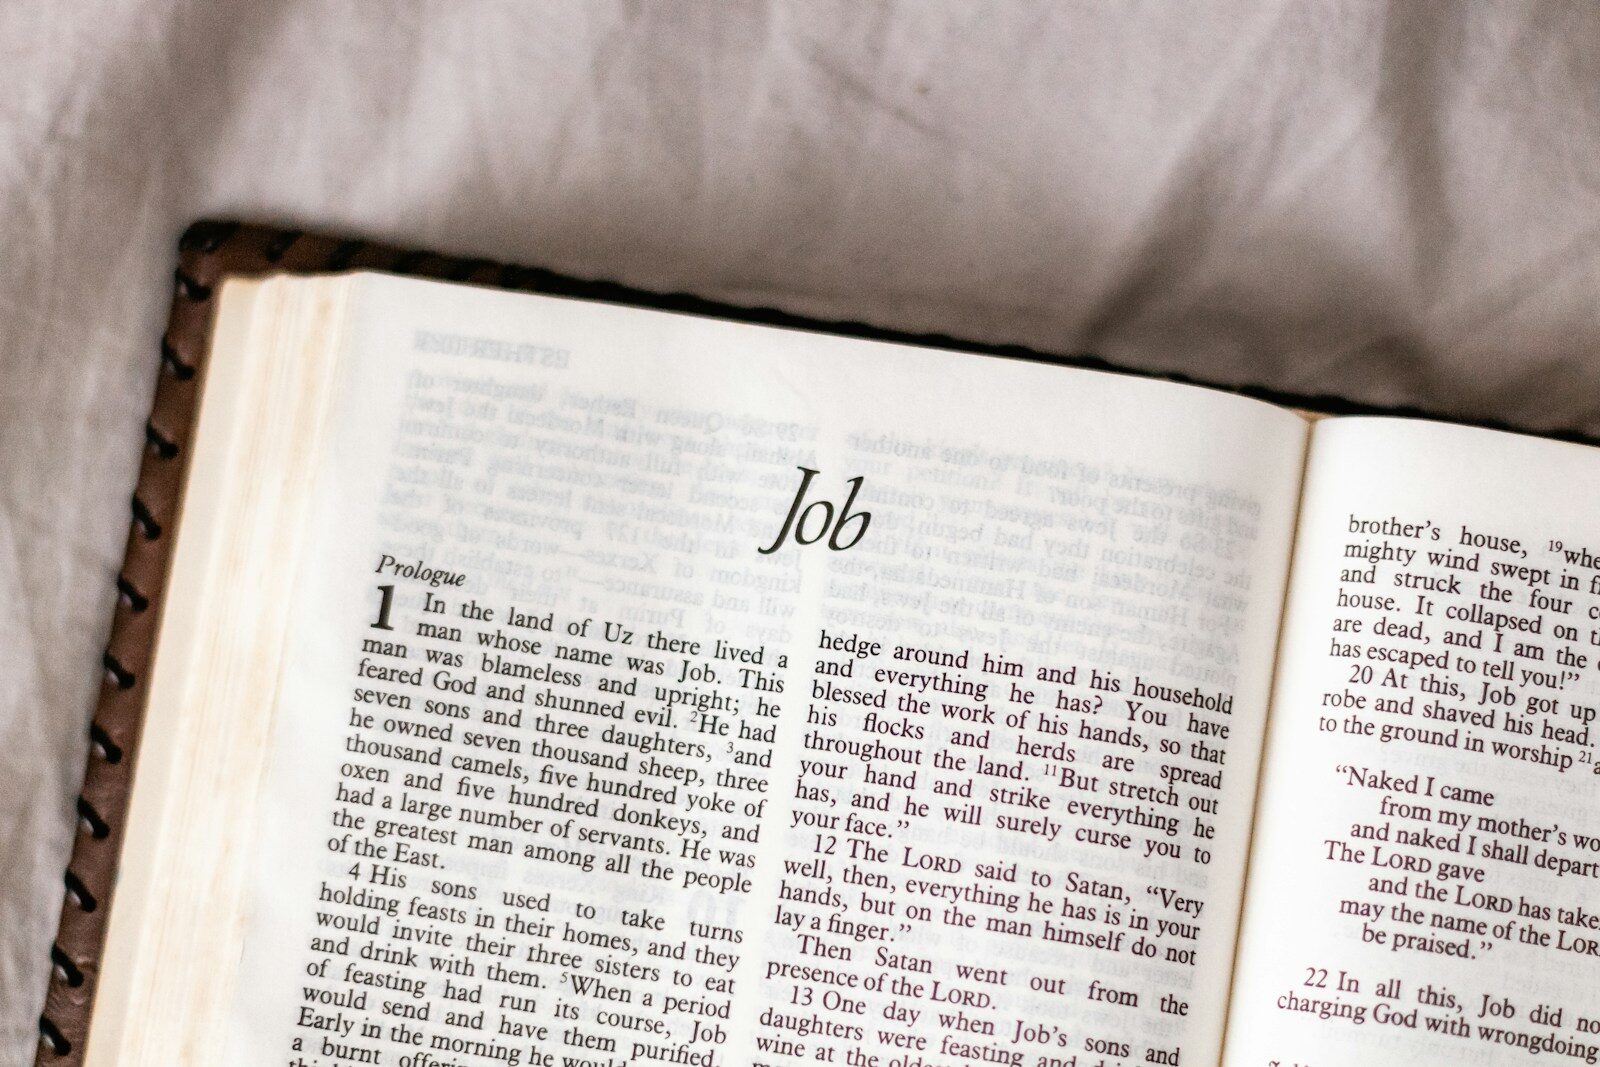 Job
Prologue
1 In the land of Uz there lived a
man whose name was Job. This
man was blameless and upright; he
feared God and shunned evil. 2He had
seven sons and three daughters, 3and
he owned seven thousand sheep, three
thousand camels, five hundred yoke of
oxen and five hundred donkeys, and
had a large number of servants. He was
the greatest man among all the people
of the East.
4 His sons used to take turns
holding feasts in their homes, and they
would invite their three sisters to eat
and drink with them. 5When a period
of feasting had run its course, Job
would send and have them purified.
Early in the morning he would
a burnt
hedge around him and his household
and everything he has? You have
blessed the work of his hands, so that
his flocks and herds are spread
throughout the land. 11But stretch out
your hand and strike everything he
has, and he will surely curse you to
your face.”
12 The LORD said to Satan, “Very
well, then, everything he has is in your
hands, but on the man himself do not
lay a finger.”
Then Satan went out from the
presence of the LORD.
13 One day when Job’s sons and
daughters were feasting and
wine at the
brother’s house, 19
mighty wind swept in
and struck the four
house. It collapsed on
are dead, and I am the
has escaped to tell you!”
20 At this, Job got up
robe and shaved his head.
to the ground in worship 21
“Naked I came
from my mother’s
and naked I shall depart
The LORD gave
and the LORD has
may the name of the
be praised.”
22 In all this, Job did
charging God with wrongdoing